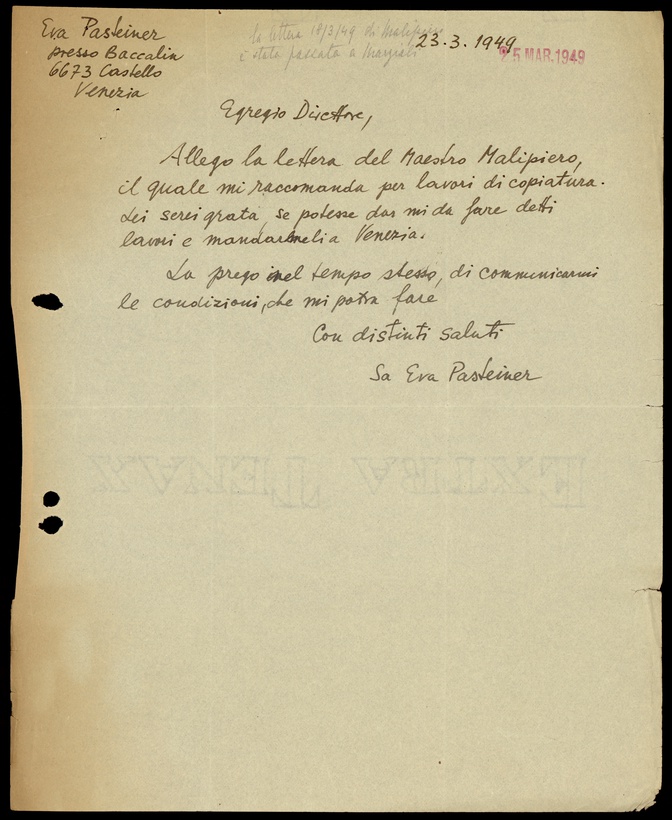 Eva Pasteiner
presso Baccalin
6673 Castello
Venezia
la lettera 18/3/49 di Malipiero
è stata passata a
23.3.1949
25 MAR. 1949
Egregio Direttore,
Allego la lettera del Maestro Malipiero,
il quale mi raccomanda per lavori di copiatura.
Lei serei grata se potesse dar mi da fare detti
lavori e mandarmeli a Venezia.
La prego nel tempo stesso, di communicarmi
le condizioni, che mi potra fare
Con distinti saluti
Sa Eva Pasteiner
EXTRA TENAX